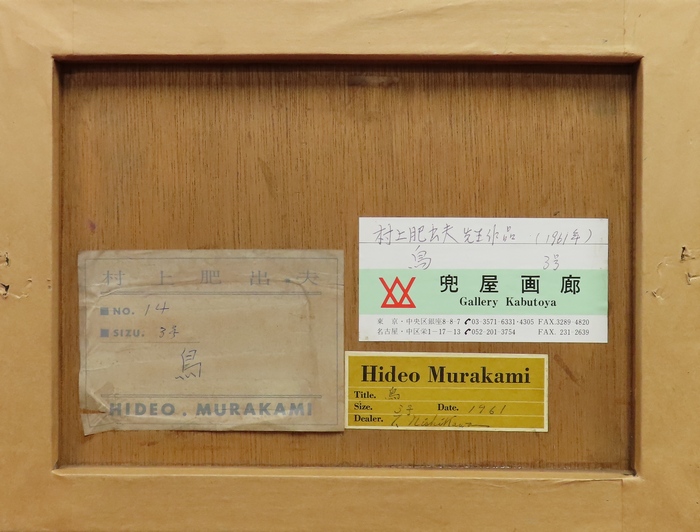 村上肥出夫
NO. 14
SIZU. 3号
鳥
HIDEO. MURAKAMI
村上肥出夫 先生作品 (1961年)
鳥 3号
兜屋画廊
Gallery Kabutoya
東 京・中央区銀座8-8-7 03-3571-6331・4305 FAX.3289-4820
名古屋・中区栄1-17-13 052-201-3754 FAX. 231-2639
Hideo Murakami
Title. 鳥
Size. 3号 Date. 1961
Dealer.